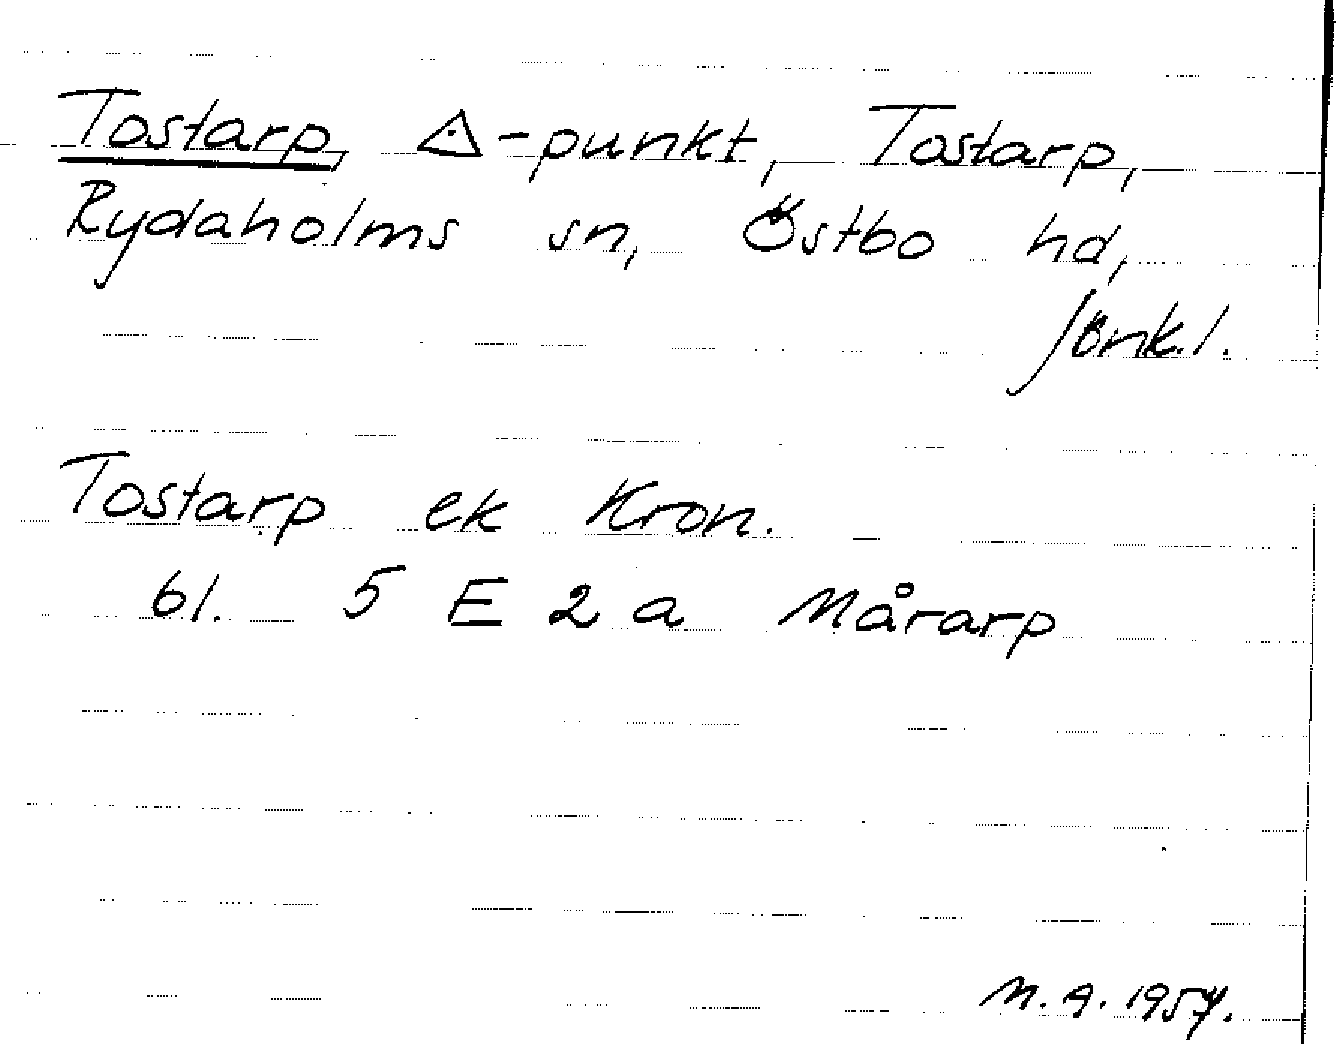 Tostarp, △-punkt, Tostarp,
Rydaholms sn, Östbo hd,
Jönk.l.
Tostarp ek Kron.
bl. 5 E 2 a Mårarp
M.A. 1957.